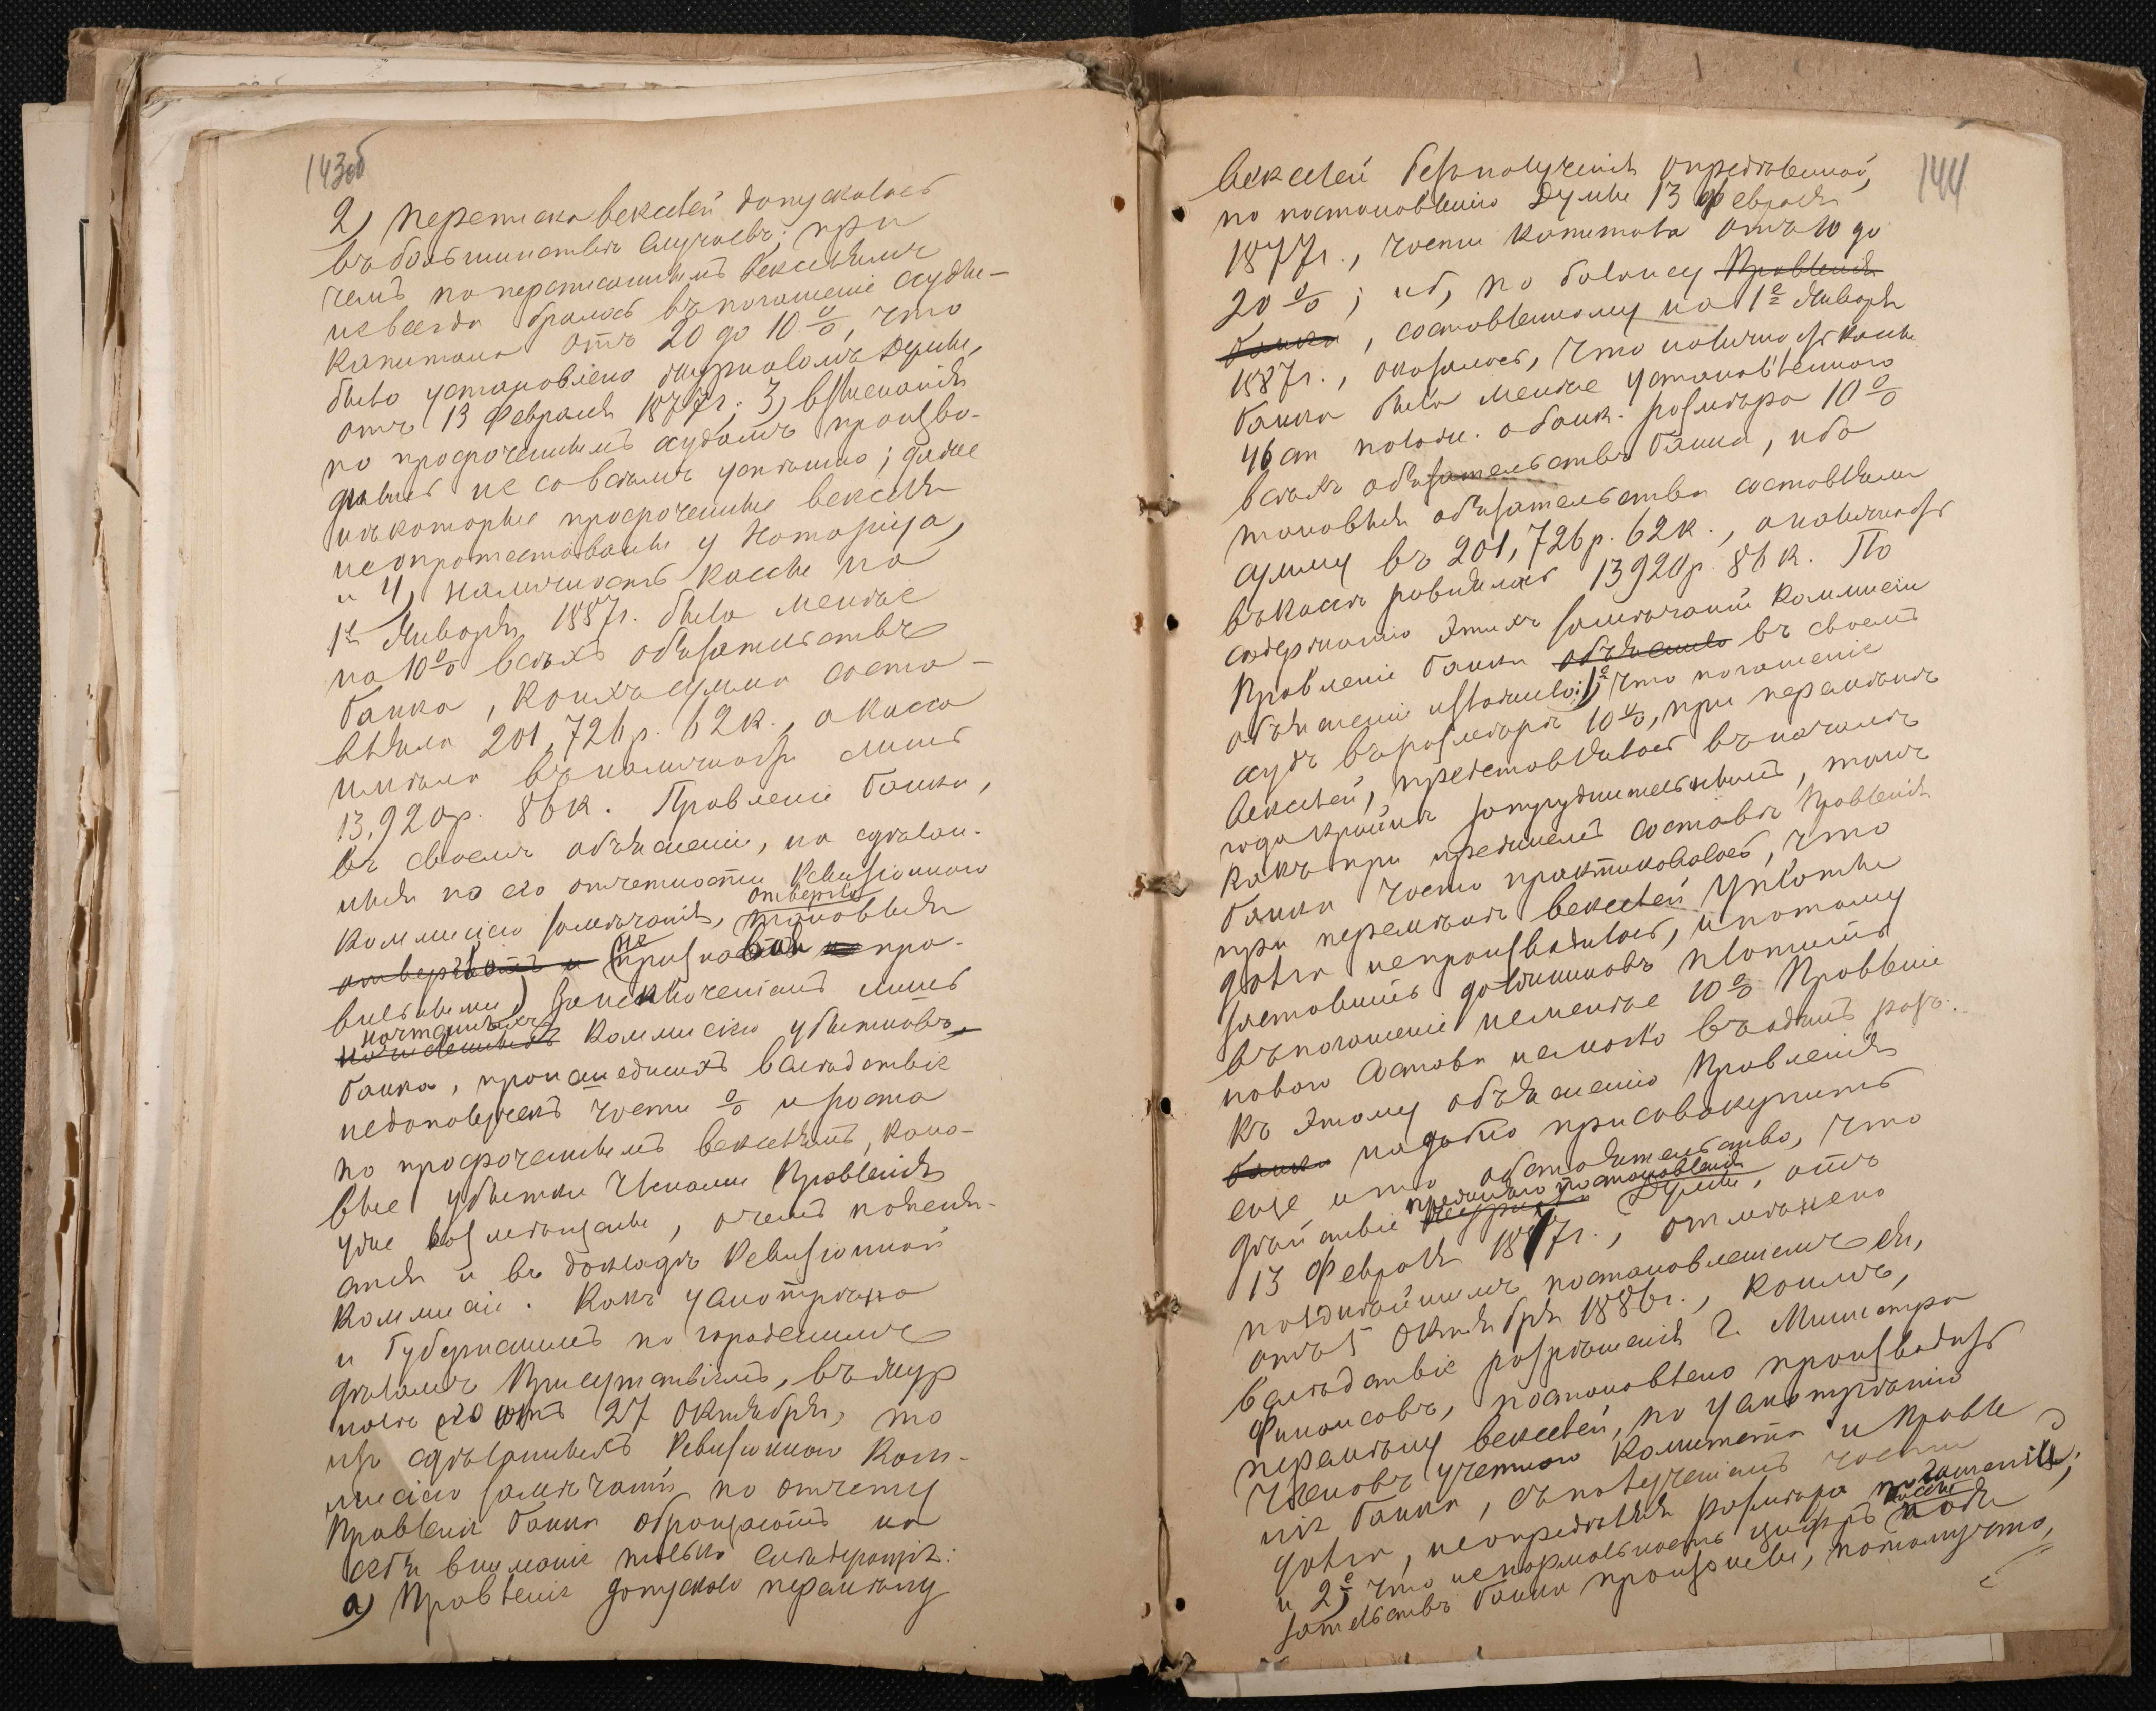 143об
2) переписка векселей допускалась
въ большинствѣ случаевъ; при
чемъ по переписаннымъ векселямъ
не всегда бралось въ погашеніе ссудн-
капитала отъ 20 до 10%, что
было установлено журналомъ Думы,
отъ 13 Февраля 1877г.; 3) взысканія
по просроченнымъ ссудамъ произво-
дились не совсѣмъ успѣшно; даже
нѣкоторые просроченные векселя
неопротестованы у Нотаріуса,
и 4) наличность кассы на
1е Января 1887г. была менѣе
на 10% всѣхъ обязательствъ
банка, коихъ сумма соста-
вляла 201,726р. 62к., а касса
имѣла въ наличности лишь
13,920р. 86к. Правленіе банка,
въ своемъ объясненіи, на сдѣлан-
ныя по его отчетности Ревизіонною
Коммисіею замѣчанія, отвергло таковыя
отвергаетъ и не признавая пра-
вильными, за исключеніемъ лишь
насчитанныхъ Коммисіею убытковъ
банка, происшедшихъ вслѣдствіе
недополученія части % и роста
по просроченнымъ векселямъ, како-
вые убытки Членами Правленія
уже возмѣщены, о чемъ поясня-
ется и въ докладѣ Ревизіонной
Коммисіи. Какъ усмотрѣно
и Губернскимъ по городскимъ
дѣламъ Присутствіемъ, въ жур
налѣ его отъ 27 Октября, то
изъ сдѣланныхъ Ревизіонною Ком-
мисіею замѣчаній по отчету
Правленія банка обращаютъ на
себя вниманіе только слѣдующія:
а) Правленіе допускало перемѣну
144
векселей безъ полученія опредѣленной,
по постановленію Думы 13 Февраля
1877г., части капитала отъ 10 до
20%; и б) по балансу Правленія
банка, составленному на 1е Января
1887г., оказалось, что наличность кассы
банка была менѣе установленнаго
46 ст полож. о банк. размѣра 10%
всѣхъ обязательствъ банка, ибо
таковыя обязательства составляли
сумму въ 201,726р. 62к., а наличность
въ кассѣ равнялась 13920р. 86к. По
содержанію этихъ замѣчаній Коммисіи
Правленіе банка объяснило въ своемъ
объясненіи изложило: 1е, что погашеніе
ссудъ въ размѣрѣ 10%, при перемѣнѣ
векселей, представлялось въ началѣ
года крайне затруднительнымъ, такъ
какъ при прежнемъ составѣ Правленія
банка часто практиковалось, что
при перемѣнѣ векселей уплаты
долга не производилось, и потому
заставить должниковъ платить
въ погашеніе не менѣе 10% Правленіе
новаго состава не могло въ одинъ разъ.
Къ этому объясненію Правленія
банка надобно присовокупить
еще и то обстоятельство, что
дѣйствіе прежняго постановленія Думы, отъ
13 Февраля 1877г., отмѣнено
позднѣйшимъ постановленіемъ ея,
отъ 5 Октября 1886г., коимъ,
вслѣдствіе разрѣшенія г. Министра
Финансовъ, постановлено производить
перемѣну векселей, по усмотрѣнію
Членовъ учетнаго Комитета и Правле
нія банка, съ полученіемъ части
долга, неопредѣляя размѣра погашенія;
и 2е, что ненормальность цифръ кассы и обя
зательствъ банка произошли, потому что,